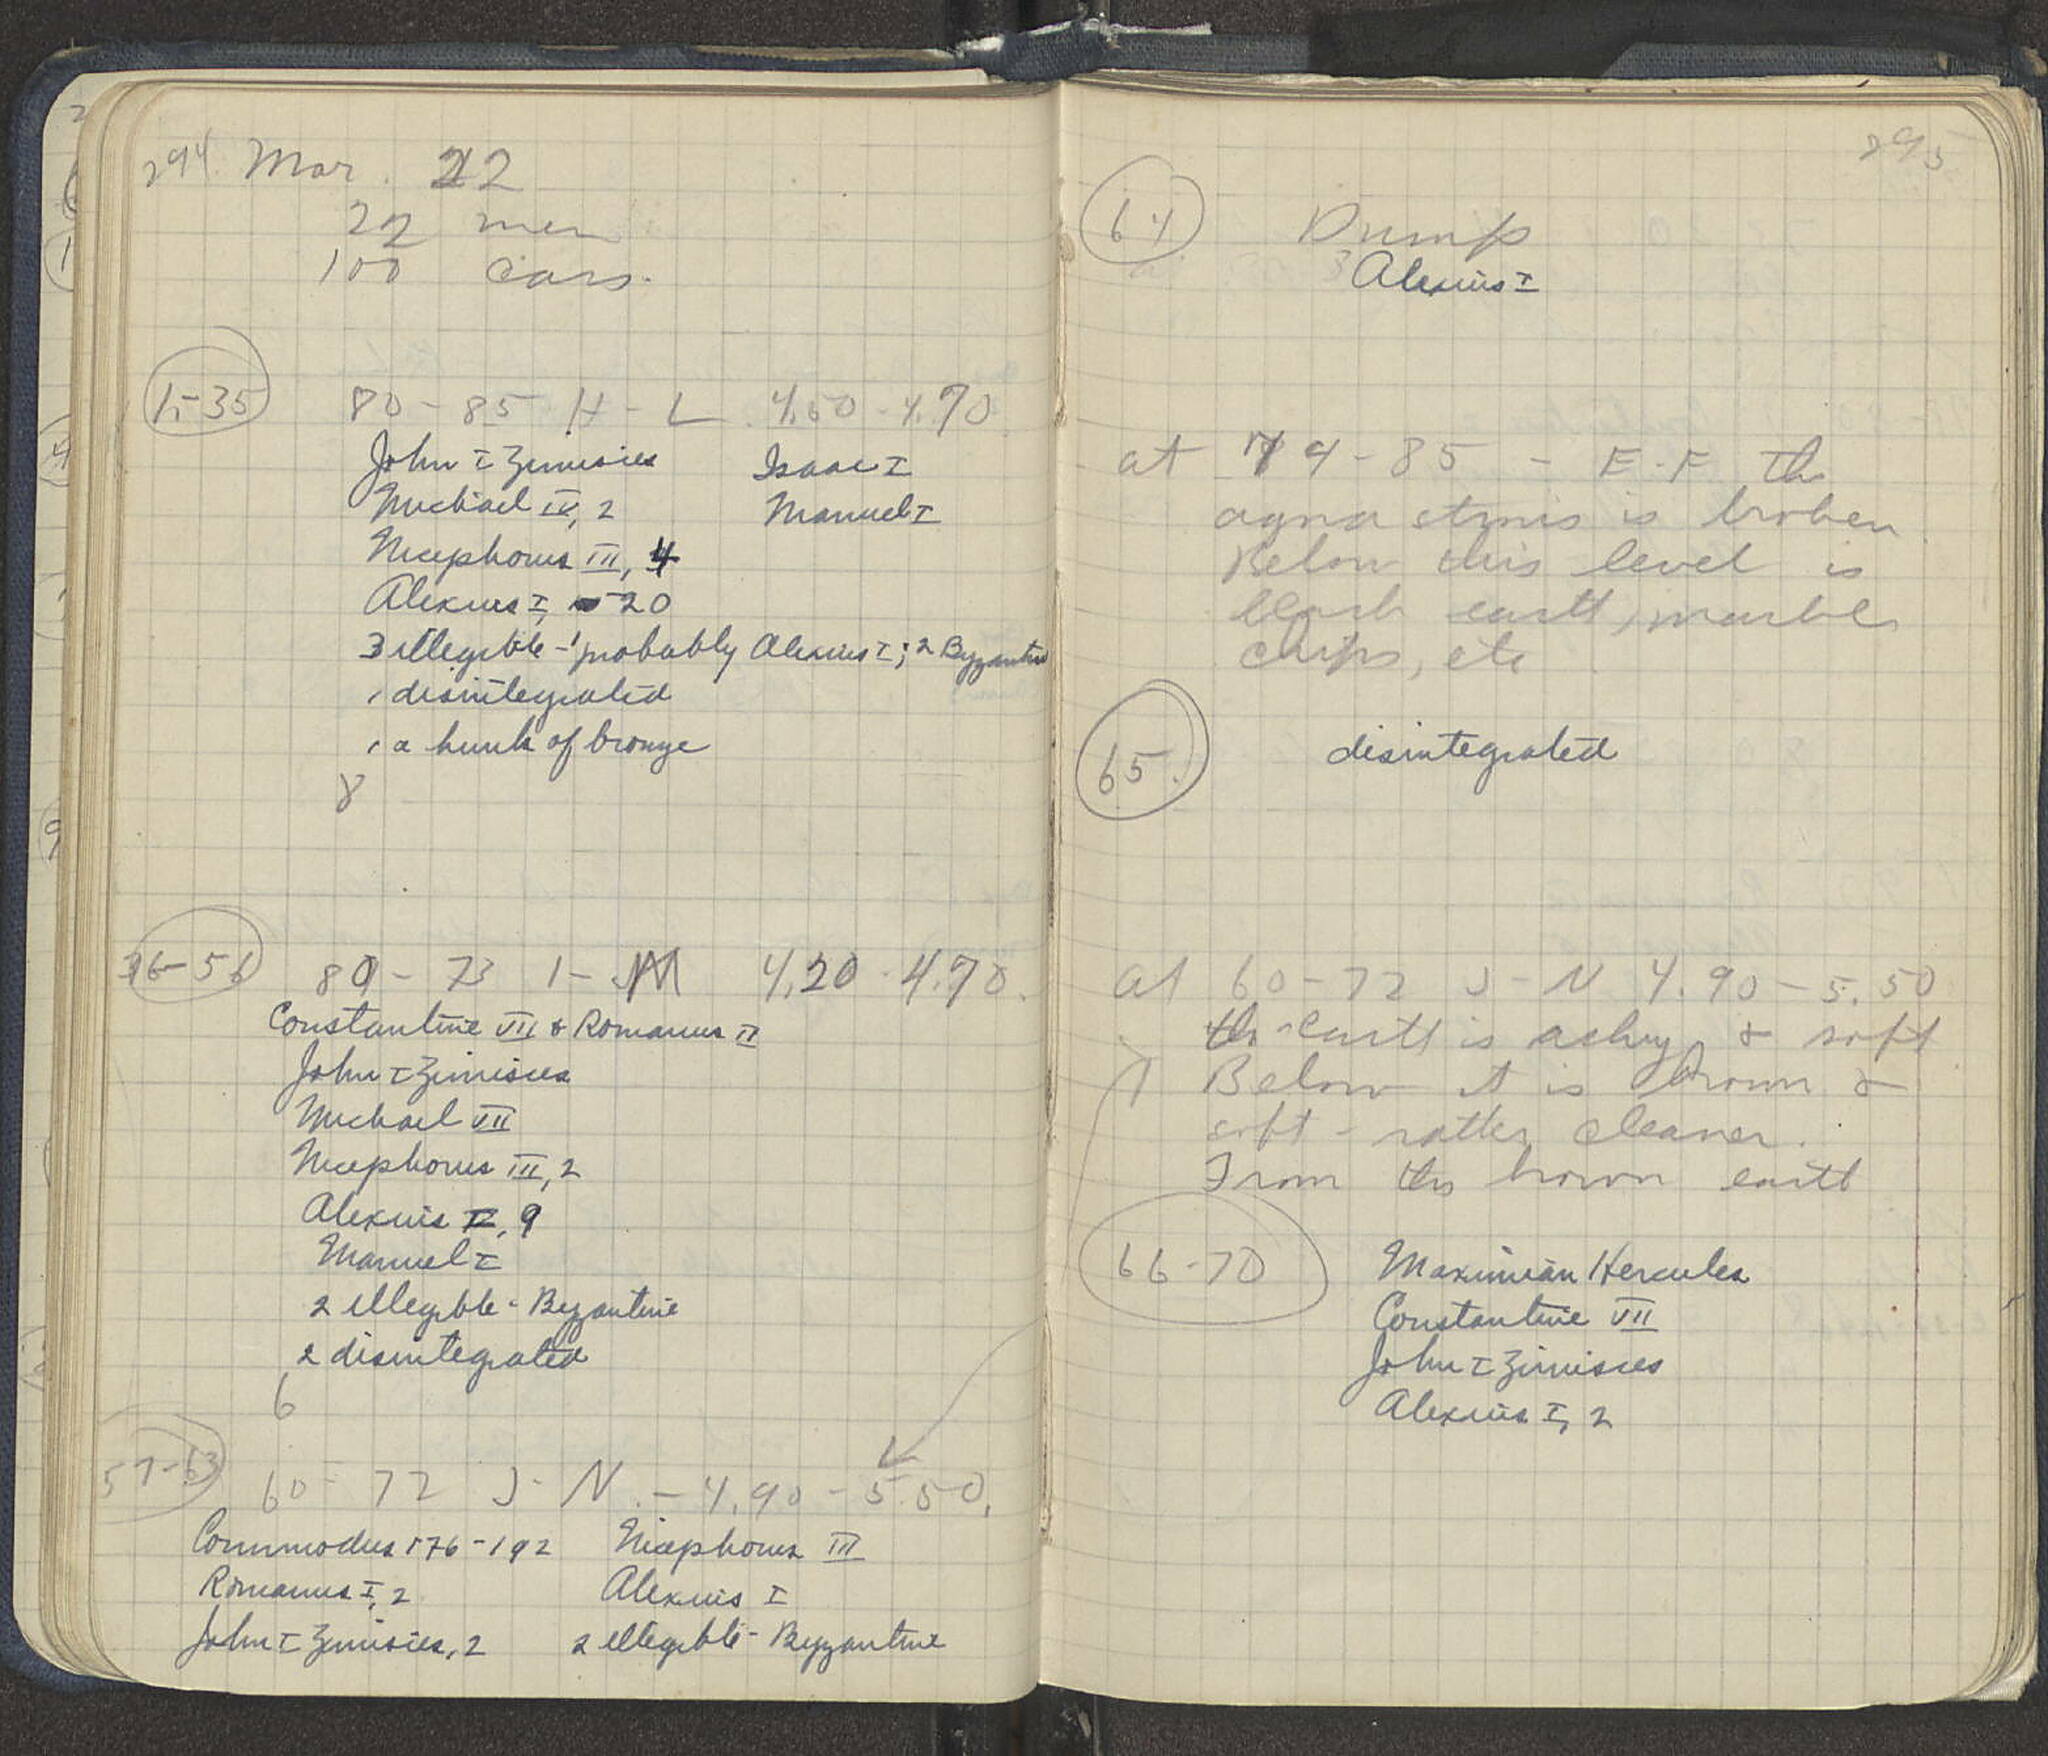 294 Mar. 22
22 men
100 cars.
1-35 80-85 H-L 4.50-4.70
John I Zimisces Isaac I
Michael IV, 2 Manuel I
Nicephorus III, 4
Alexius I, 20
3 illegible - 1 probably Alexius I; 2 Byzantine
1 disintegrated
1 a hunk of bronze
8
36-56 80-73 I-M 4.20-4.70.
Constantine VII & Romanus II
John I Zimisces
Michael VII
Nicephorus III, 2
Alexius I, 9
Manuel I
2 illegible - Byzantine
2 disintegrated
6
57-63 60-72 J-N. - 4.90-5.50.
Commodus 176-192 Nicephorus III
Romanus I, 2 Alexius I
John I Zimisces, 2 2 illegible - Byzantine
295
64 Dump
Alexius I
at 74-85 - E-F the
agora stros is broken.
Below this level is
black earth, marble
chips, etc
65. disintegrated
at 60-72 J-N 4.90-5.50
the earth is ashy & soft
Below it is brown &
soft - rather cleaner.
From this brown earth
66-70 Maximian Hercules
Constantine VII
John I Zimisces
Alexius I, 2